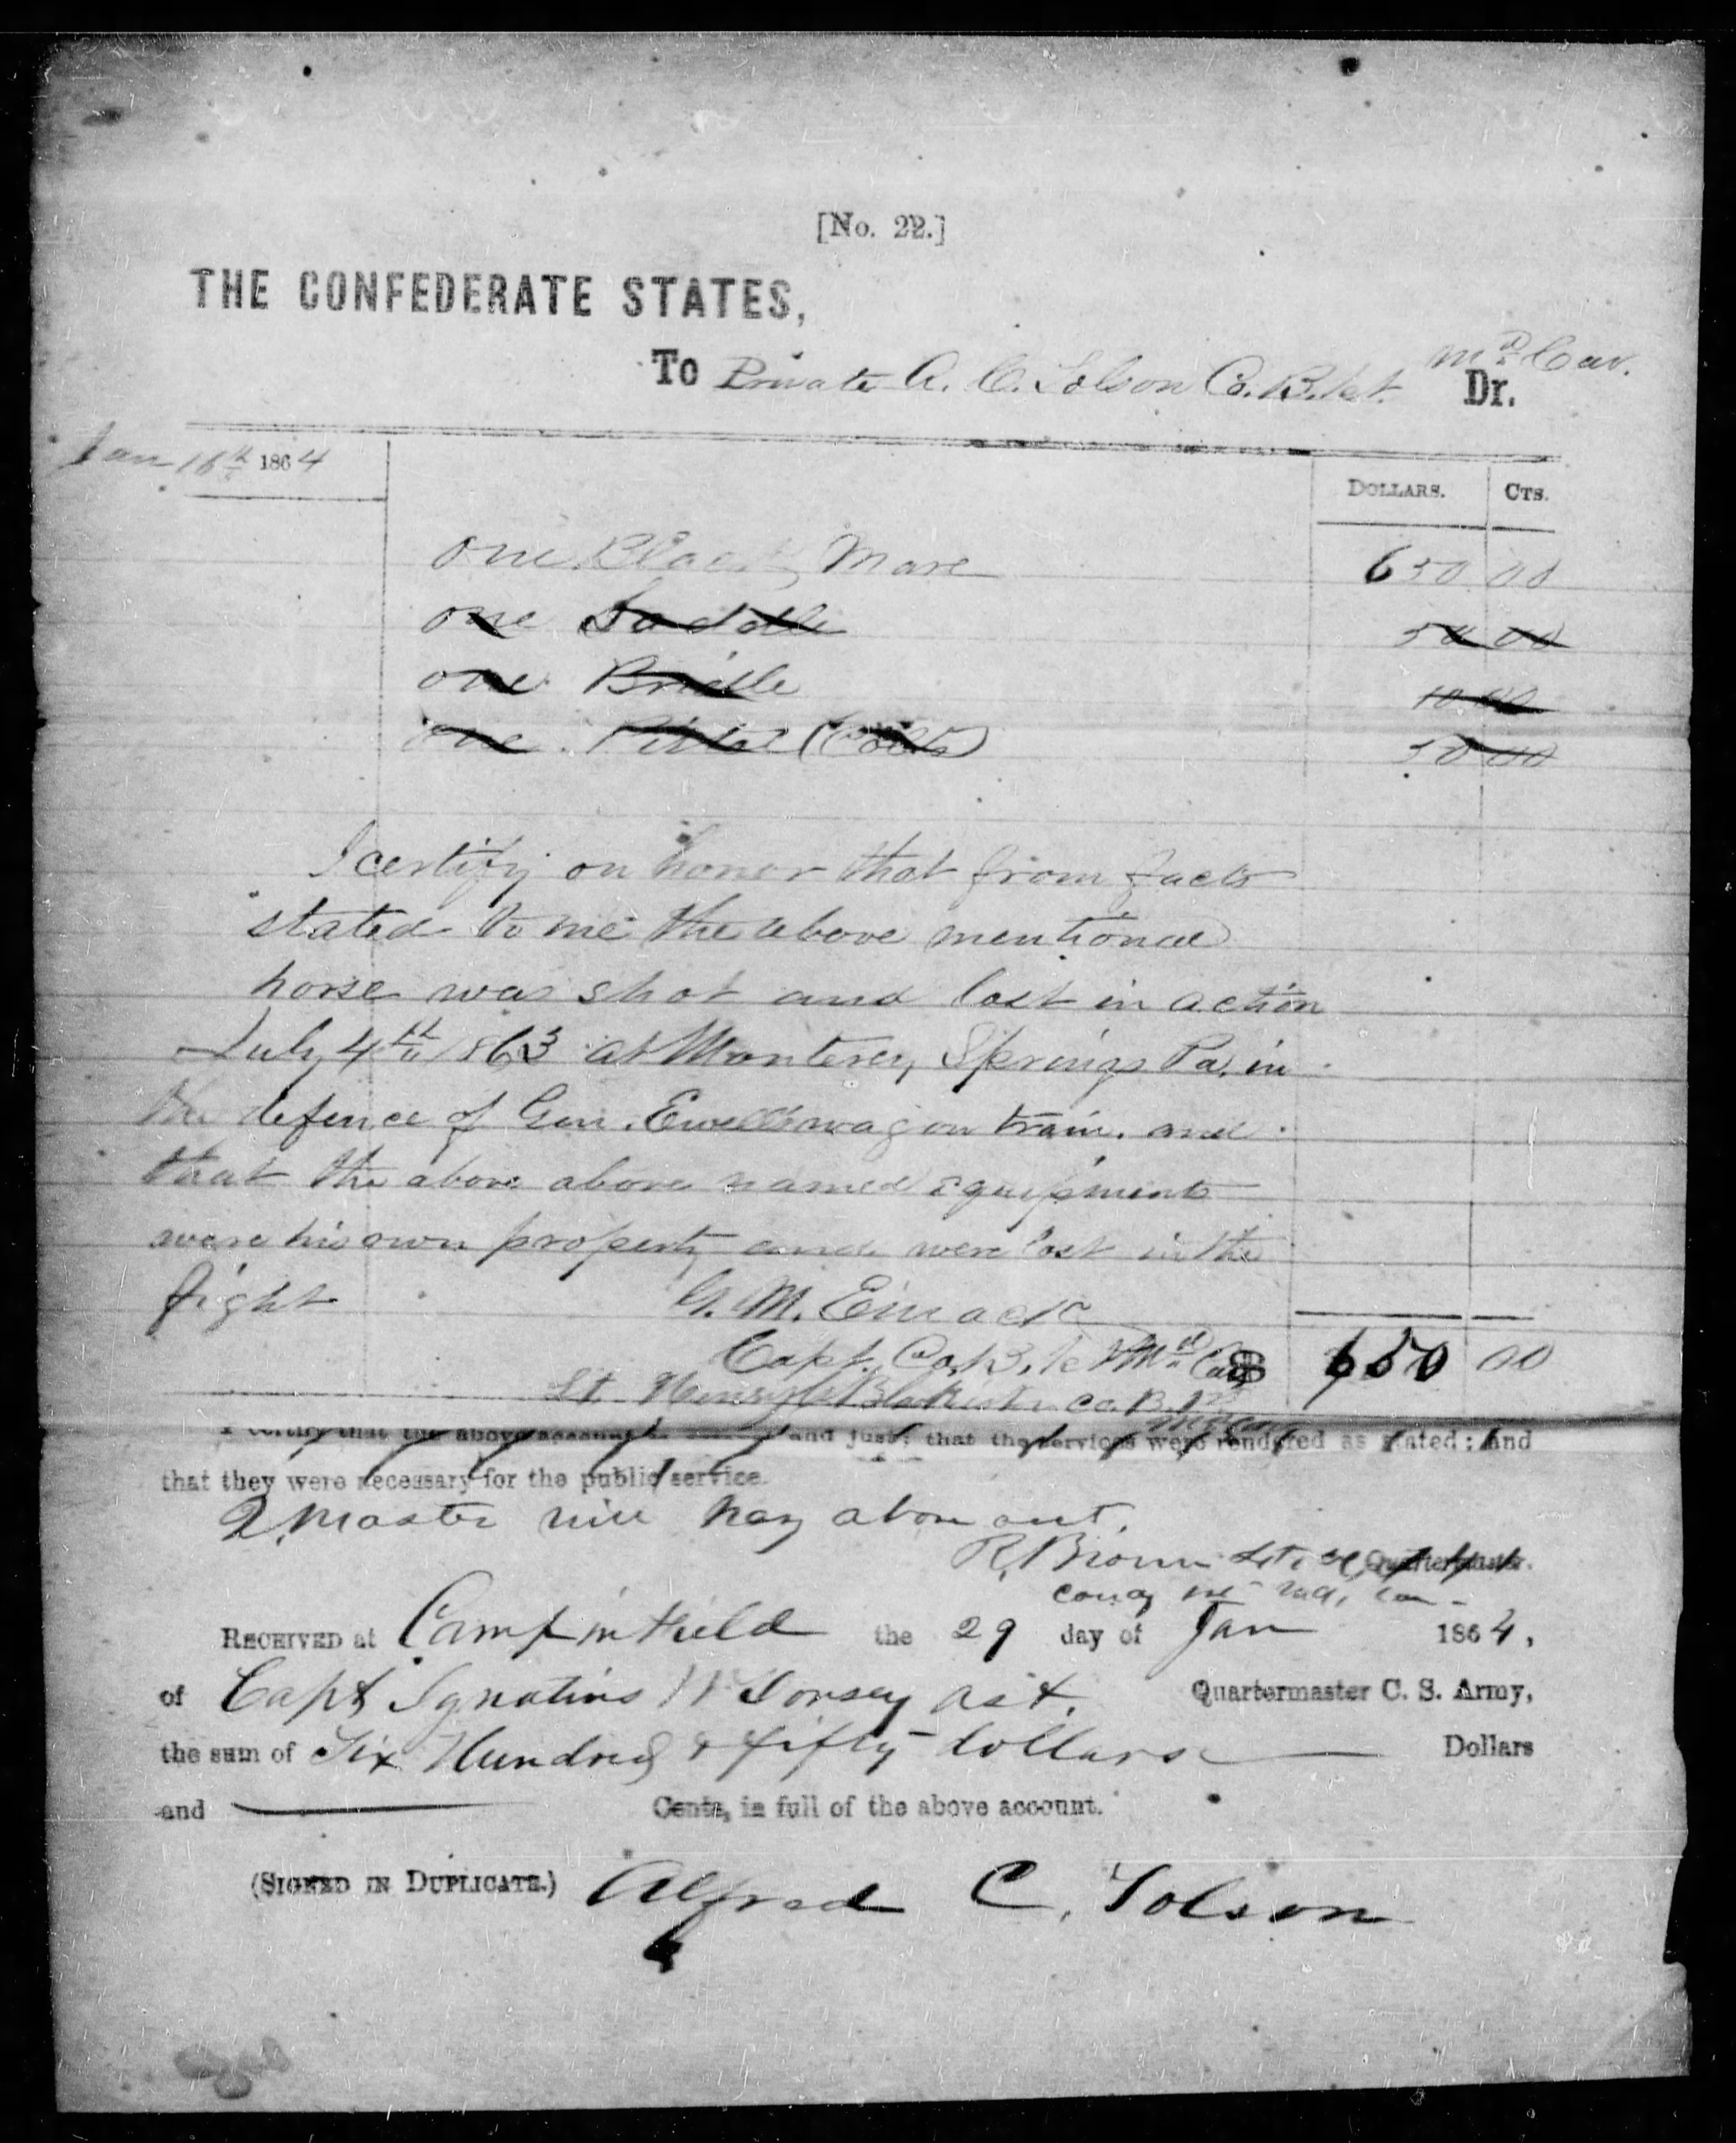 [No. 22.]
THE CONFEDERATE STATES,
To Private A. C. Tolson Co. B. 1st. Md Cav. Dr.
Jan 16th 1864
DOLLARS. CTS.
One Black Mare 650 00
one Saddle 50 00
one Bridle 10 00
one Pistol (Colts) 50 00
I certify on honor that from facts
stated to me the above mentioned
horse was shot and lost in action
July 4th 1863 at Monterey Springs Pa. in
the defence of Gen. Ewell's wagon train. and
that the above above named equipments
were his own property and were lost in the
fight G. M. Emack
Capt. Co. B. 1st Md Cav $ 650 00
Lt. Henry C Blackiston Co. B.
I certify that the above account is and just; that the services were rendered as stated; and
that they were necessary for the public service.
Q. Master will pay above act.
R. Brown Lt. Quartermaster.
Comdg 1st Md. Cav
RECEIVED at Camp in Field the 29 day of Jan 1864,
of Capt Ignatius W Dorsey Ast. Quartermaster C. S. Army,
the sum of Six Hundred & fifty dollars Dollars
and Cents, in full of the above account.
(SIGNED IN DUPLICATE.) Alfred C. Tolson